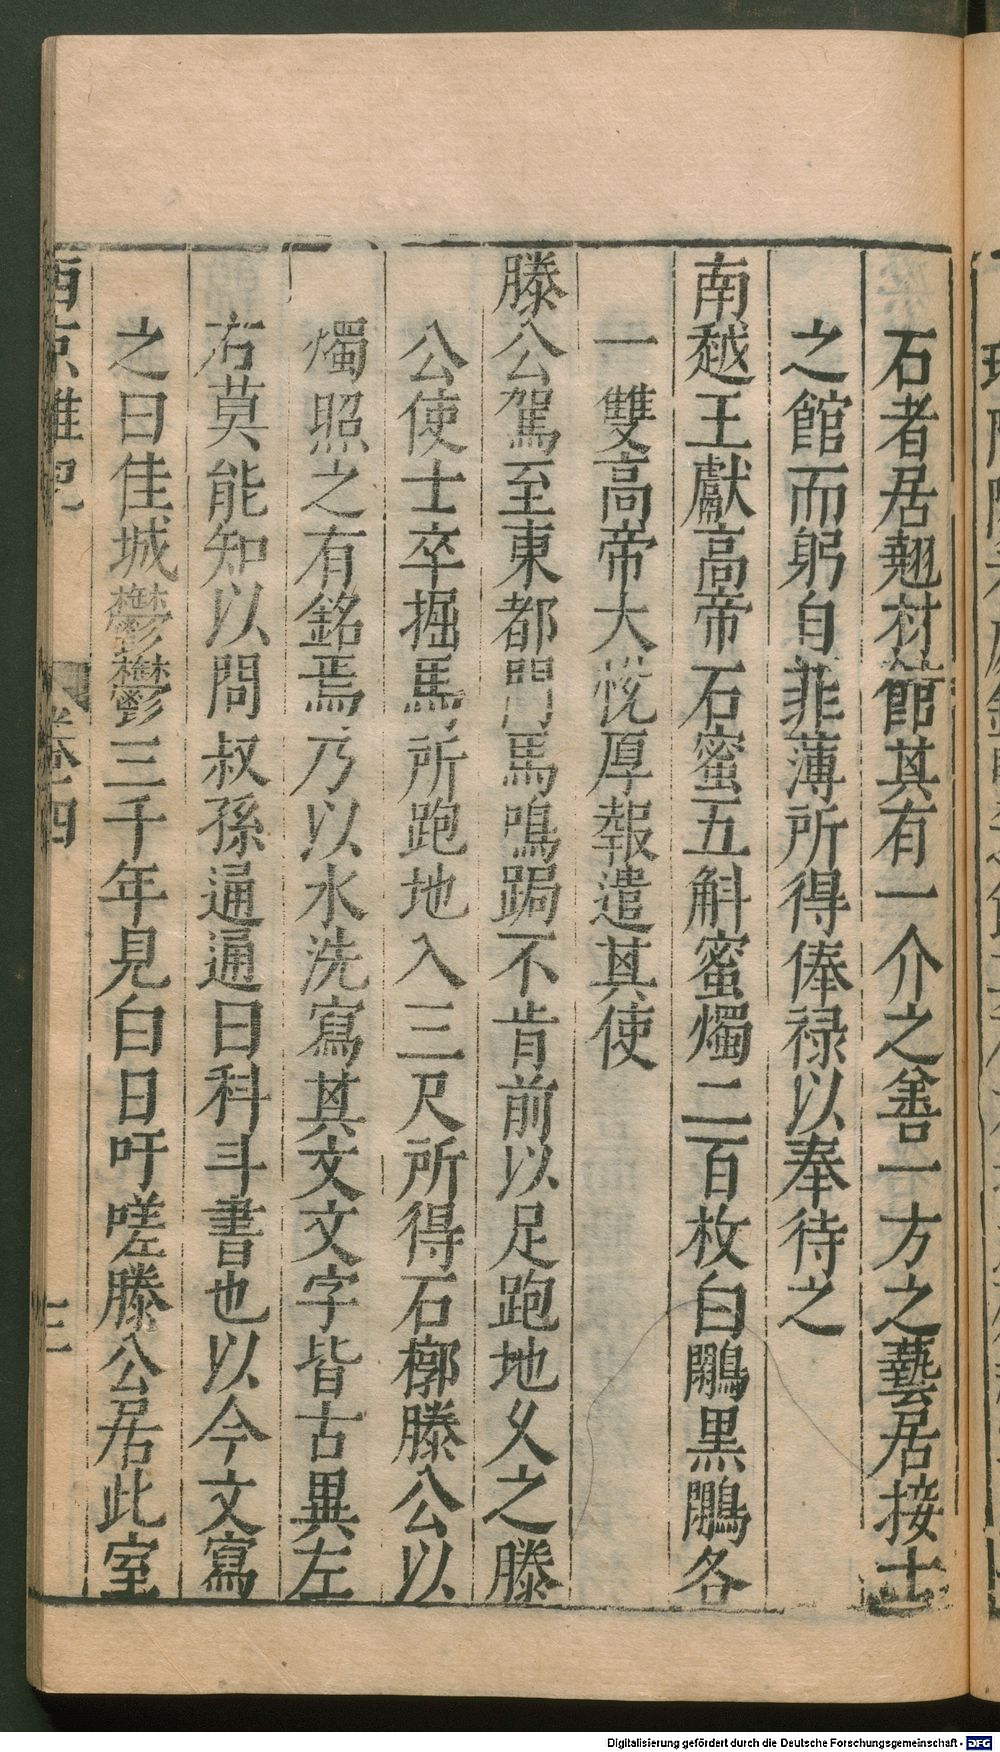 石者居翹材館其有一介之善一方之藝居接士
之館而躬自菲薄所得俸祿以奉待之
南越王獻高帝石蜜五斛蜜燭二百枚白鷴黑鷴各
一雙高帝大悅厚報遣其使
滕公駕至東都門馬鳴跼不肯前以足跑地久之滕
公使士卒掘馬所跑地入三尺所得石槨滕公以
燭照之有銘焉乃以水洗寫其文文字皆古異左
右莫能知以問叔孫通通曰科斗書也以今文寫
之曰佳城鬱鬱三千年見白日吁嗟滕公居此室
西京雜記 卷四 三
Digitalisierung gefördert durch die Deutsche Forschungsgemeinschaft - DFG